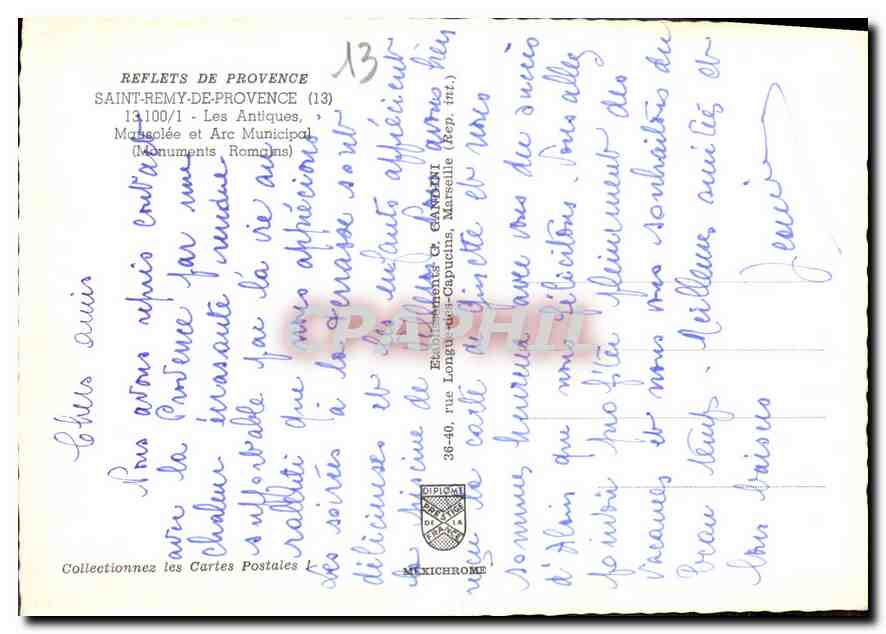 REFLETS DE PROVENCE
SAINT-REMY-DE-PROVENCE (13)
13.100/1 - Les Antiques,
Mausolée et Arc Municipal
(Monuments Romains)
13
Chers amis
Nous avons repris contact
avec la Provence par une
chaleur écrasante rendue
supportable par la vie au
ralenti que nous apprécions.
Les soirées à la terrasse sont
délicieuses et les enfants apprécient
la piscine de avons bien
reçu la carte de et nous
sommes heureux avec vous du succès
d'Alain que nous félicitons. Vous allez
pouvoir profiter pleinement des
vacances et nous vous souhaitons du
beau temps. Meilleures amitiés et
bons baisers
Etablissements G. GANDINI
36-40, rue Longue-des-Capucins, Marseille (Rep. int.)
CPAPHIL
DIPLOME
PRESTIGE
DE LA
FRANCE
MEXICHROME
Collectionnez les Cartes Postales !